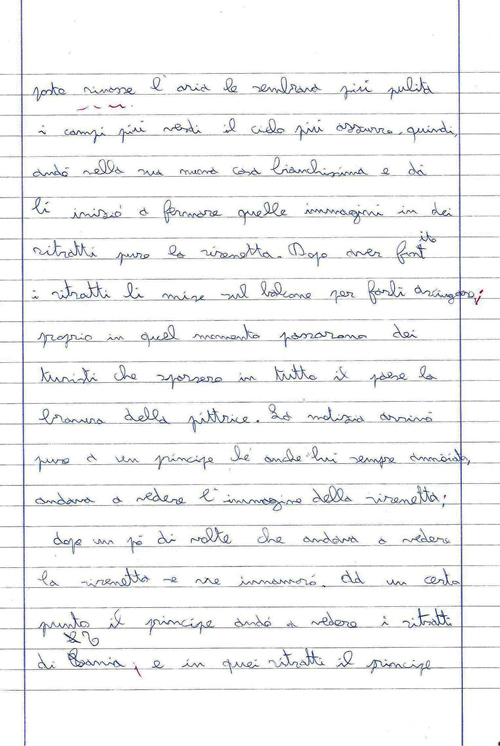 posto rimase l'aria le sembrava più pulita
i campi più verdi il cielo più azzurro. quindi,
andò nella sua nuova casa bianchissima e da
lì iniziò a fermare quelle immagini in dei
ritratti pure la sirenetta. Dopo aver finito
i ritratti li mise sul balcone per farli asciugare;
proprio in quel momento passarono dei
turisti che sparsero in tutto il paese la
bravura della pittrice. La notizia arrivò
pure a un principe ché anche lui sempre annoiato,
andava a vedere l'immagine della sirenetta;
dopo un pò di volte che andava a vedere
la sirenetta se ne innamorò. Ad un certo
punto il principe andò a vedere i ritratti
di Vania; e in quei ritratti il principe